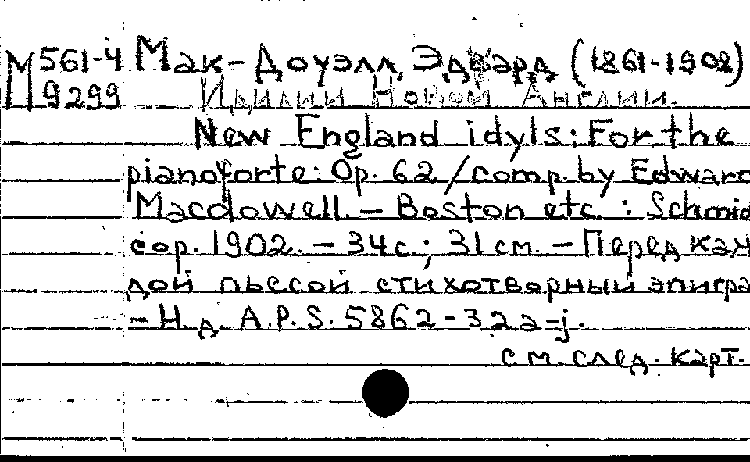 М 561-4 Мак-Доуэлл, Эдвард (1861-1908)
9299 Идилии Новой Англии.
New England idyls: For the
pianoforte: Op. 62 / comp. by Edward
Macdowell. - Boston etc. : Schmid
cop. 1902. - 34 с ; 31 см. - Перед каж
дой пьесой стихотворный эпигра
- Н.д. A.P.S. 5862-32a-j.
см. след. карт.